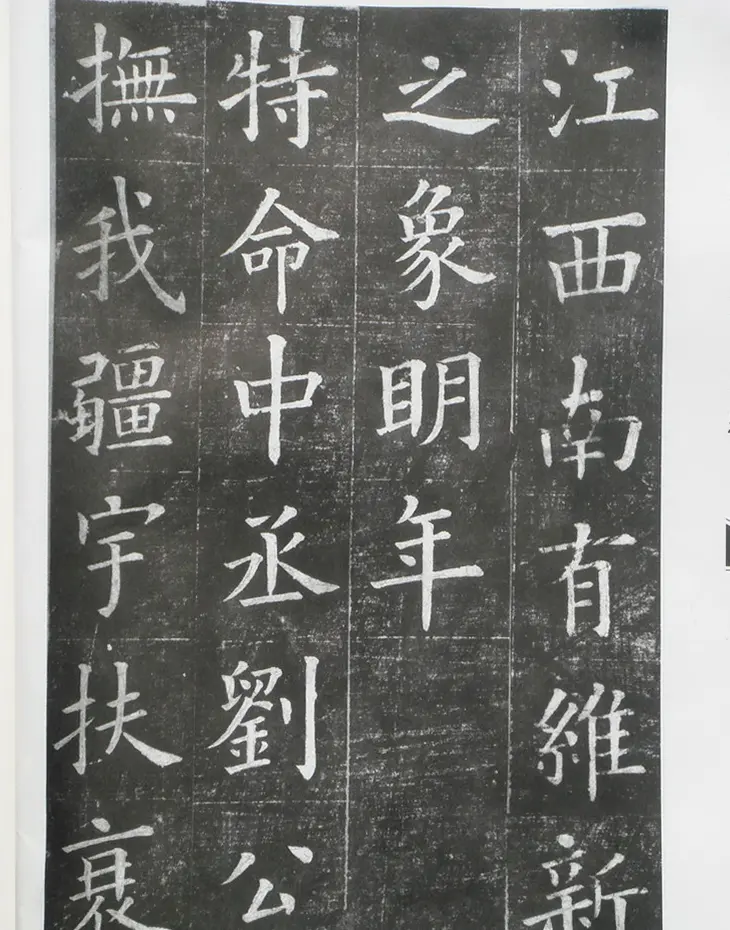 江西南有維新
之象明年
特命中丞劉公
撫我疆宇扶衰